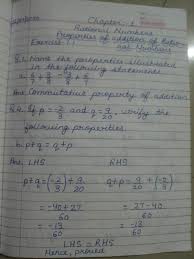 Chapter-1
Rational Numbers
Properties of addition of Ratio-
nal Numbers
Exercise 1.1
Q.1. Name the properties illustrated
in the following statements
Ans. Commutative property of addition
Q.4. If p = -2/3 and q = 9/20, verify the
following properties.
p+q = q+p
LHS RHS
p+q = (-2/3) + 9/20 q+p = 9/20 + (-2/3)
= -40+27/60 = 27-40/60
= -13/60 = -13/60
LHS = RHS
Hence, proved